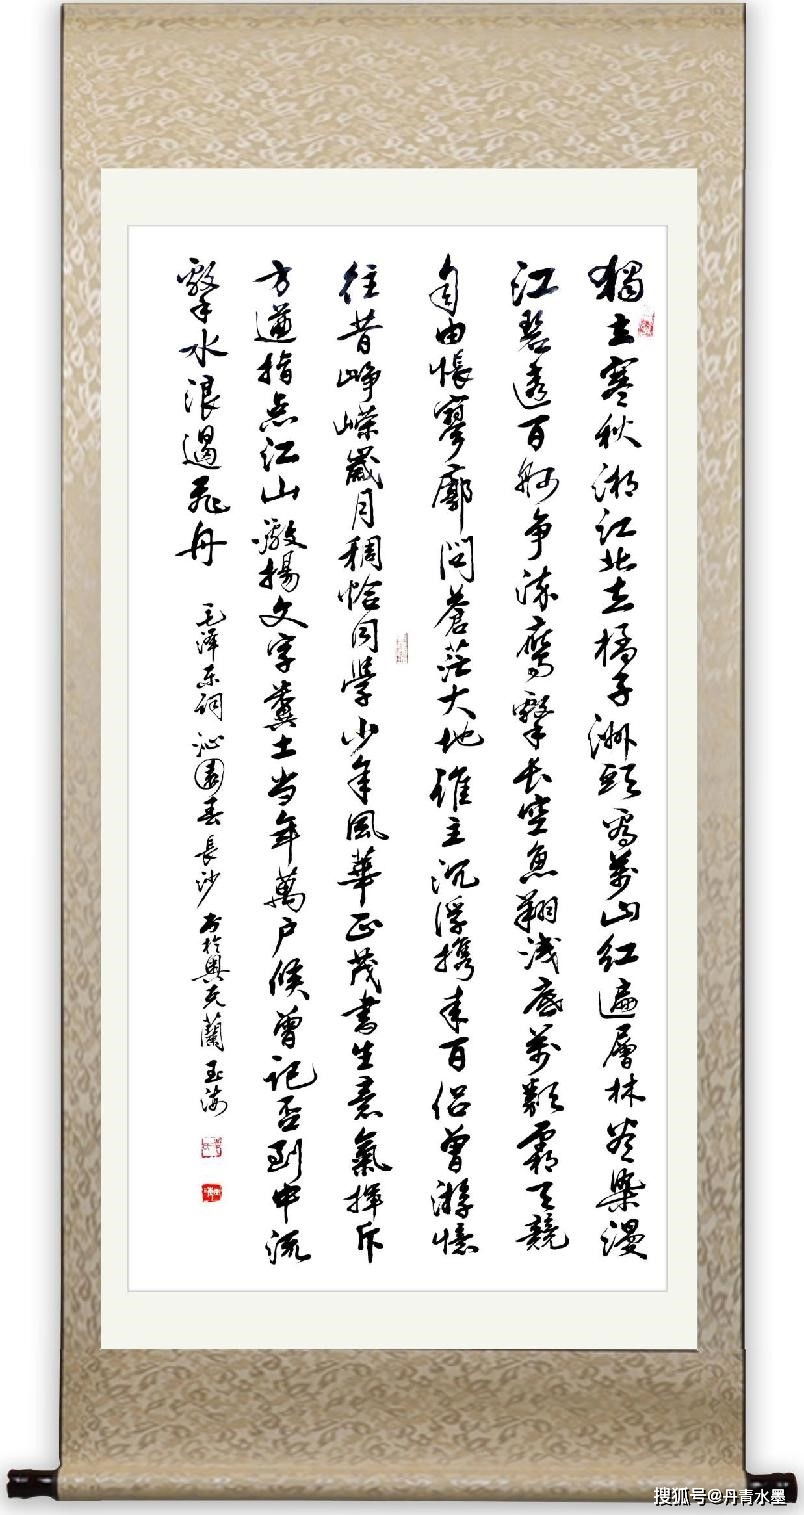 獨立寒秋湘江北去橘子洲頭看萬山紅遍層林盡染漫
江碧透百舸争流鹰擊长空魚翔浅底萬類霜天競
自由悵寥廓問蒼茫大地誰主沉浮携来百侣曾游憶
往昔峥嵘歲月稠恰同學少年風華正茂書生意氣揮斥
方遒指点江山激揚文字糞土当年萬户侯曾记否到中流
擊水浪遏飛舟
毛泽东词沁園春長沙书於奥克蘭玉海
搜狐号@丹青水墨